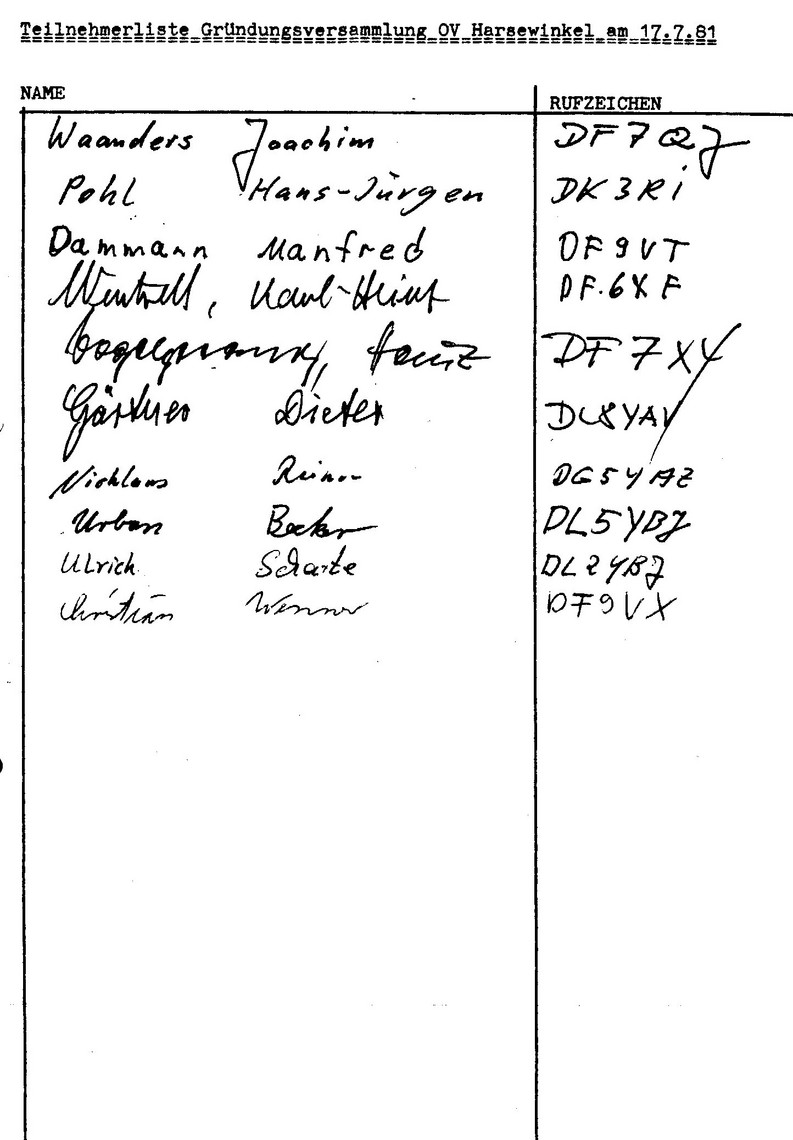 Teilnehmerliste Gründungsversammlung OV Harsewinkel am 17.7.81
NAME RUFZEICHEN
Waanders Joachim DF7QJ
Pohl Hans-Jürgen DK3Ri
Dammann Manfred DF9VT
Karl-Heinz DF.6XF
Heinz DF7XY
Gärtner Dieter DL8YAV
Nicklaus Reiner DG5YAZ
Urban Becker DL5YBJ
Ulrich Scharte DL2YBJ
Christian Wenner DF9VX